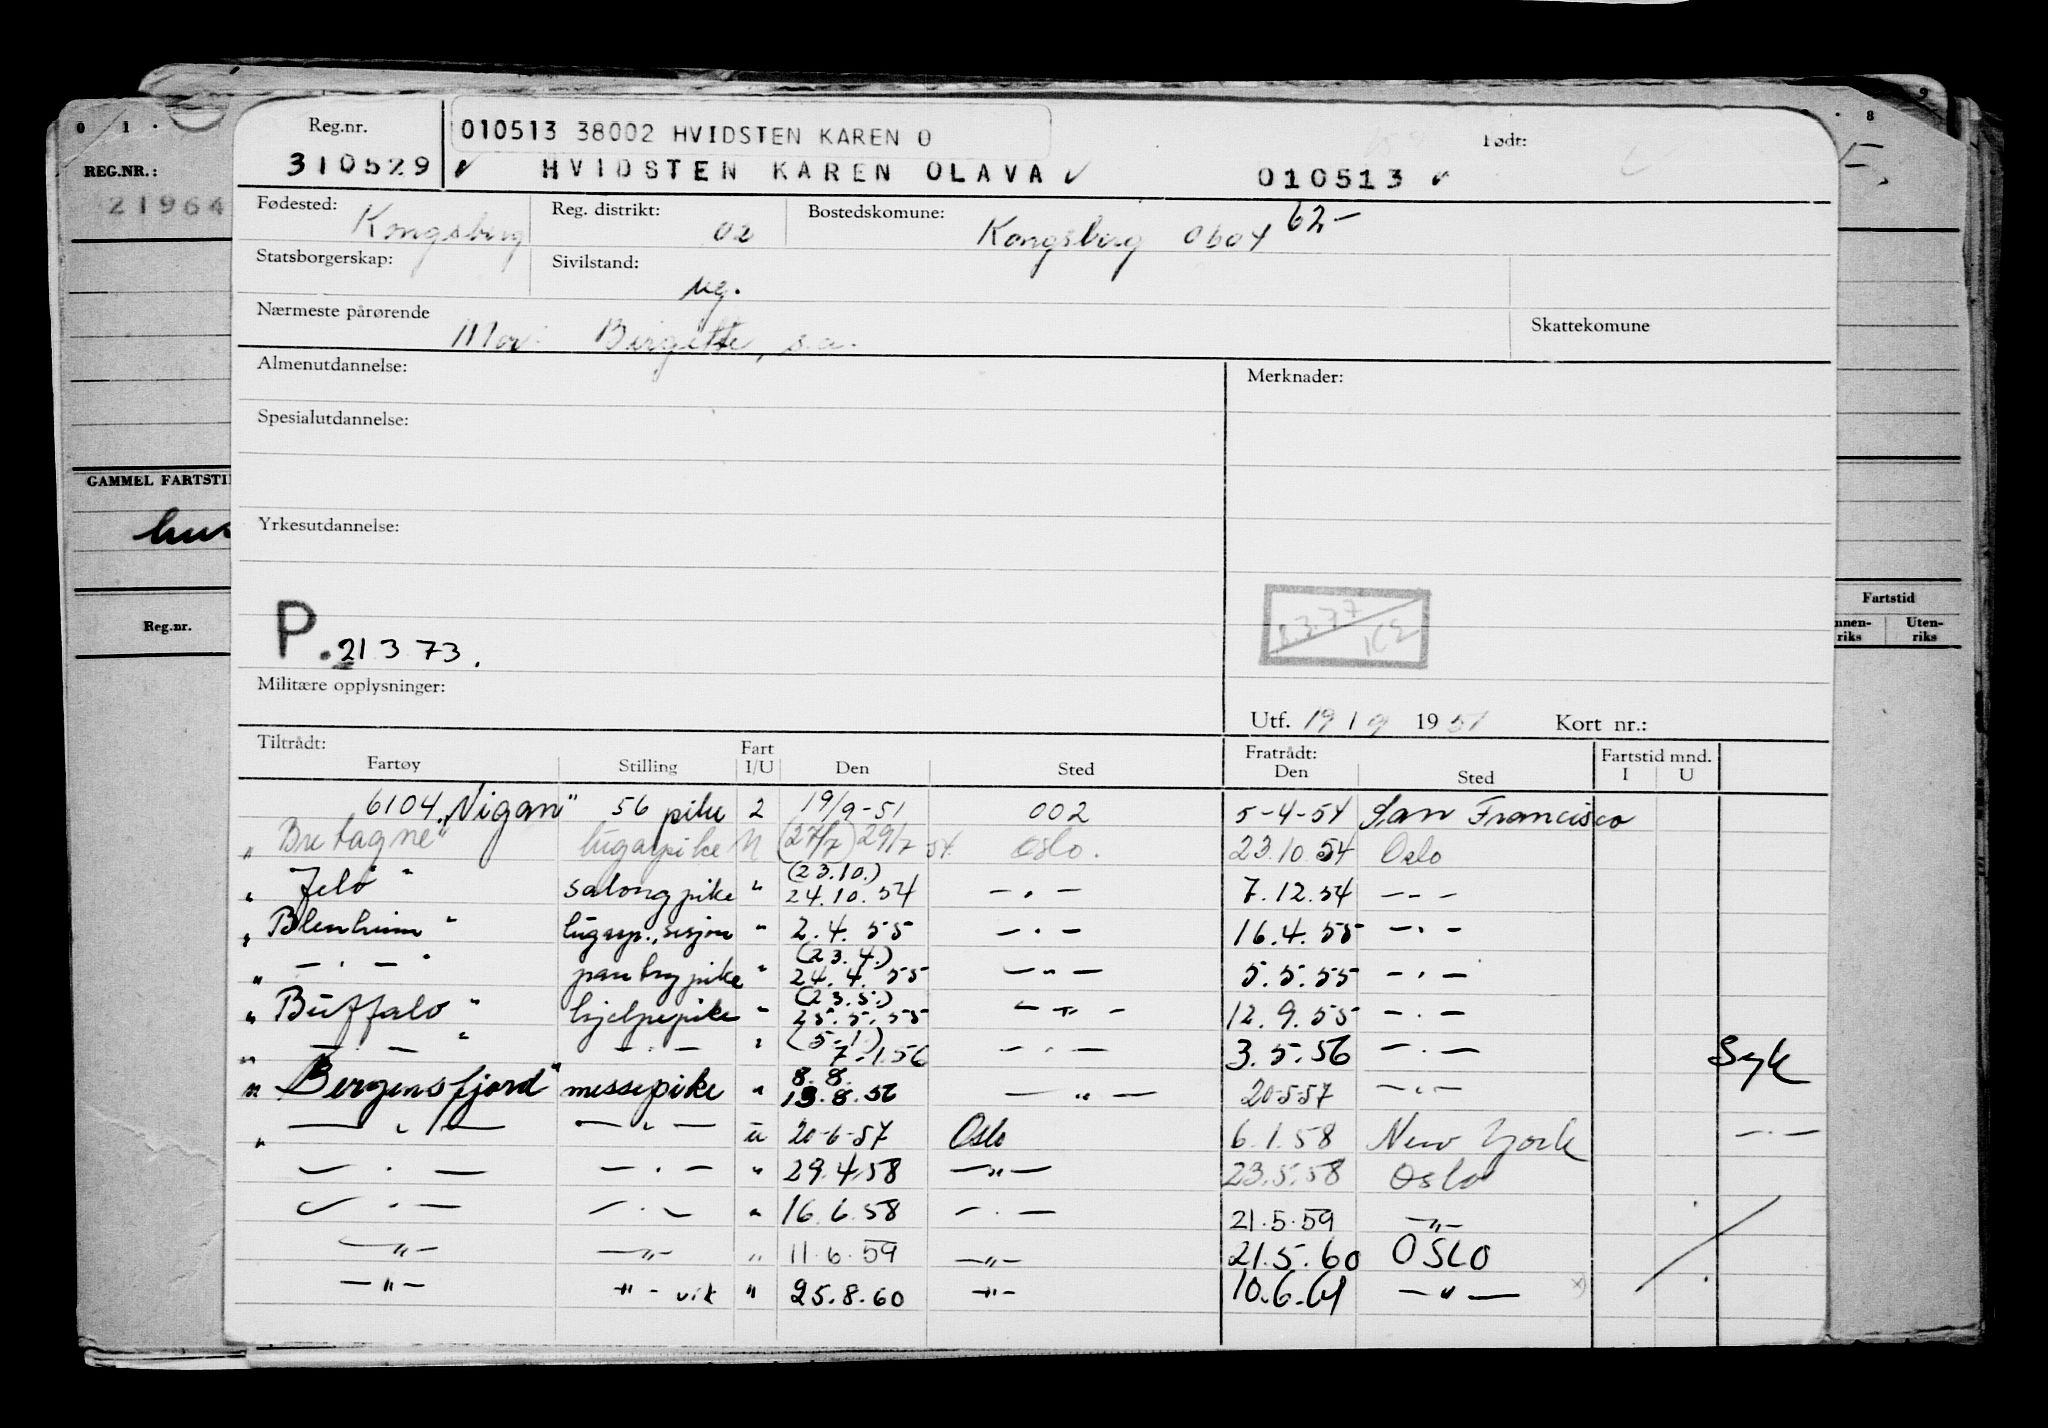 0 1 .
REG.NR.:
21964
GAMMEL FARTSTI
Reg.nr.
Reg.nr.
310529 ✓
010513 38002 HVIDSTEN KAREN O
HVIDSTEN KAREN OLAVA ✓
Født:
010513 ✓
Fødested: Kongsberg
Reg. distrikt: 02
Bostedskomune: Kongsberg 0604 62-
Statsborgerskap:
Sivilstand: ug.
Nærmeste pårørende Mor: Birgitte, s.a.
Skattekomune
Almenutdannelse:
Merknader:
Spesialutdannelse:
Yrkesutdannelse:
P. 21 3 73.
8.3.77
Militære opplysninger:
Utf. 19 / 9 1951 Kort nr.:
Tiltrådt: Fartøy Stilling Fart I/U Den Sted Fratrådt: Den Sted Fartstid mnd. I U
6104 „Nigan" 56 pike 2 19/9-51 002 5-4-54 San Francisco
„ Bretagne" lugarpike (27/7) 29/7 54. Oslo. 23.10.54 Oslo
„ Jelø " salongpike " (23.10.) 24.10.54 — . — 7.12.54 — - -
„ Blenheim " lugarp., sesjon " 2.4.55 — . — 16.4.55 — . —
„ — . — " pantrypike " (23.4.) 24.4.55 — " — 5.5.55 — . —
„ Buffalo " hjelpepike " (23.5.) 25.5.55 — " — 12.9.55 — . —
„ — . — " — . — " (5.1.) 7.1.56 — . — 3.5.56 — . — Syk
„ Bergensfjord" messepike " 8.8. 13.8.56 — „ — 20-5-57 — . —
„ — " — — . — u 20-6-57 Oslo 6.1.58 New York — . —
— . — — . — " 29.4.58 — " — 23.5.58 Oslo
— . — — . — " 16.6.58 — . — 21.5.59 — „ —
— „ — — „ — " 11.6.59 — „ — 21.5.60 OSLO
— " — — " — vik " 25.8.60 — " — 10.6.61 — " —
9
. 8
Fartstid
nnen-
riks
Uten-
riks